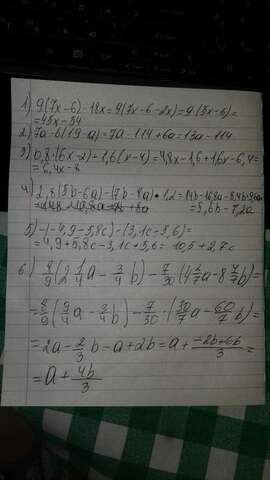 1) 9(7x-6)-18x=9(7x-6-2x)=9·(5x-6)=
=45x-54
2) 7a-6(19-a)=7a-114+6a=13a-114.
3) 0,8·(6x-2)+1,6(x-4)=4,8x-1,6+1,6x-6,4=
=6,4x-8
4) 2,8(5b-6a)-(7b-8a)·1,2=14b-16,8a-8,4b+9,6a=
=5,6b-7,2a
5) -(-4,9-5,8c)-(3,1c-5,6)=
=4,9+5,8c-3,1c+5,6=10,5+2,7c
6) 8/9(2 1/4a-3/4b)-7/30·(4 2/7a-8 4/7b)=
=8/9(9/4a-3/4b)-7/30·(30/7a-60/7b)=
=2a-2/3b-a+2b=a+(-2b+6b)/3=
=a+4b/3